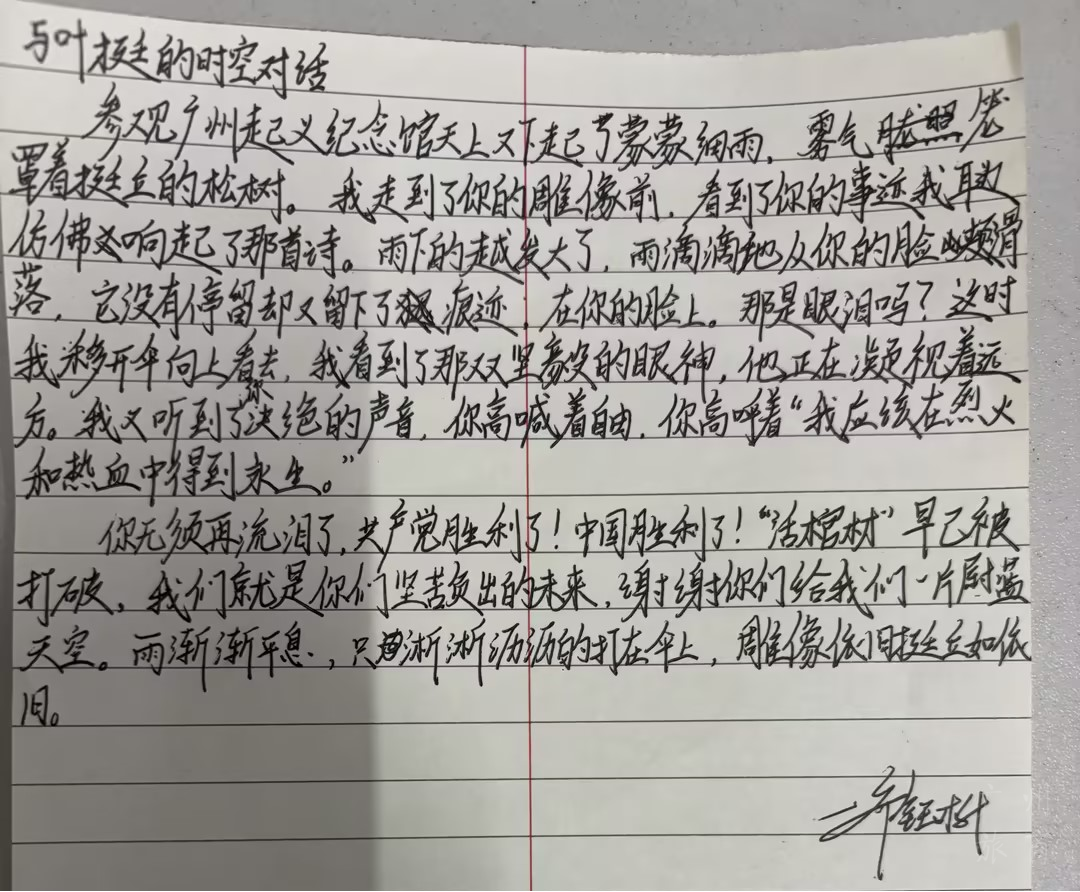 与叶挺的时空对话
参观广州起义纪念馆天上又下起了蒙蒙细雨，雾气胧照笼
罩着挺立的松树。我走到了你的雕像前，看到了你的事迹我耳边
仿佛又响起了那首诗。雨下的越发大了，雨滴滴地从你的脸颊滑
落，它没有停留却又留下了痕迹，在你的脸上。那是眼泪吗？这时
我移开伞向上看去，我看到了那双坚毅的眼神，他正在凝视着远
方。我又听到了你决绝的声音，你高喊着自由，你高呼着“我应该在烈火
和热血中得到永生。”
你无须再流泪了，共产党胜利了！中国胜利了！“活棺材”早已被
打破，我们就是你们坚苦负出的未来，谢谢你们给我们一片蔚蓝
天空。雨渐渐平息，只淅淅沥沥的打在伞上，雕像依旧挺立如依
旧。